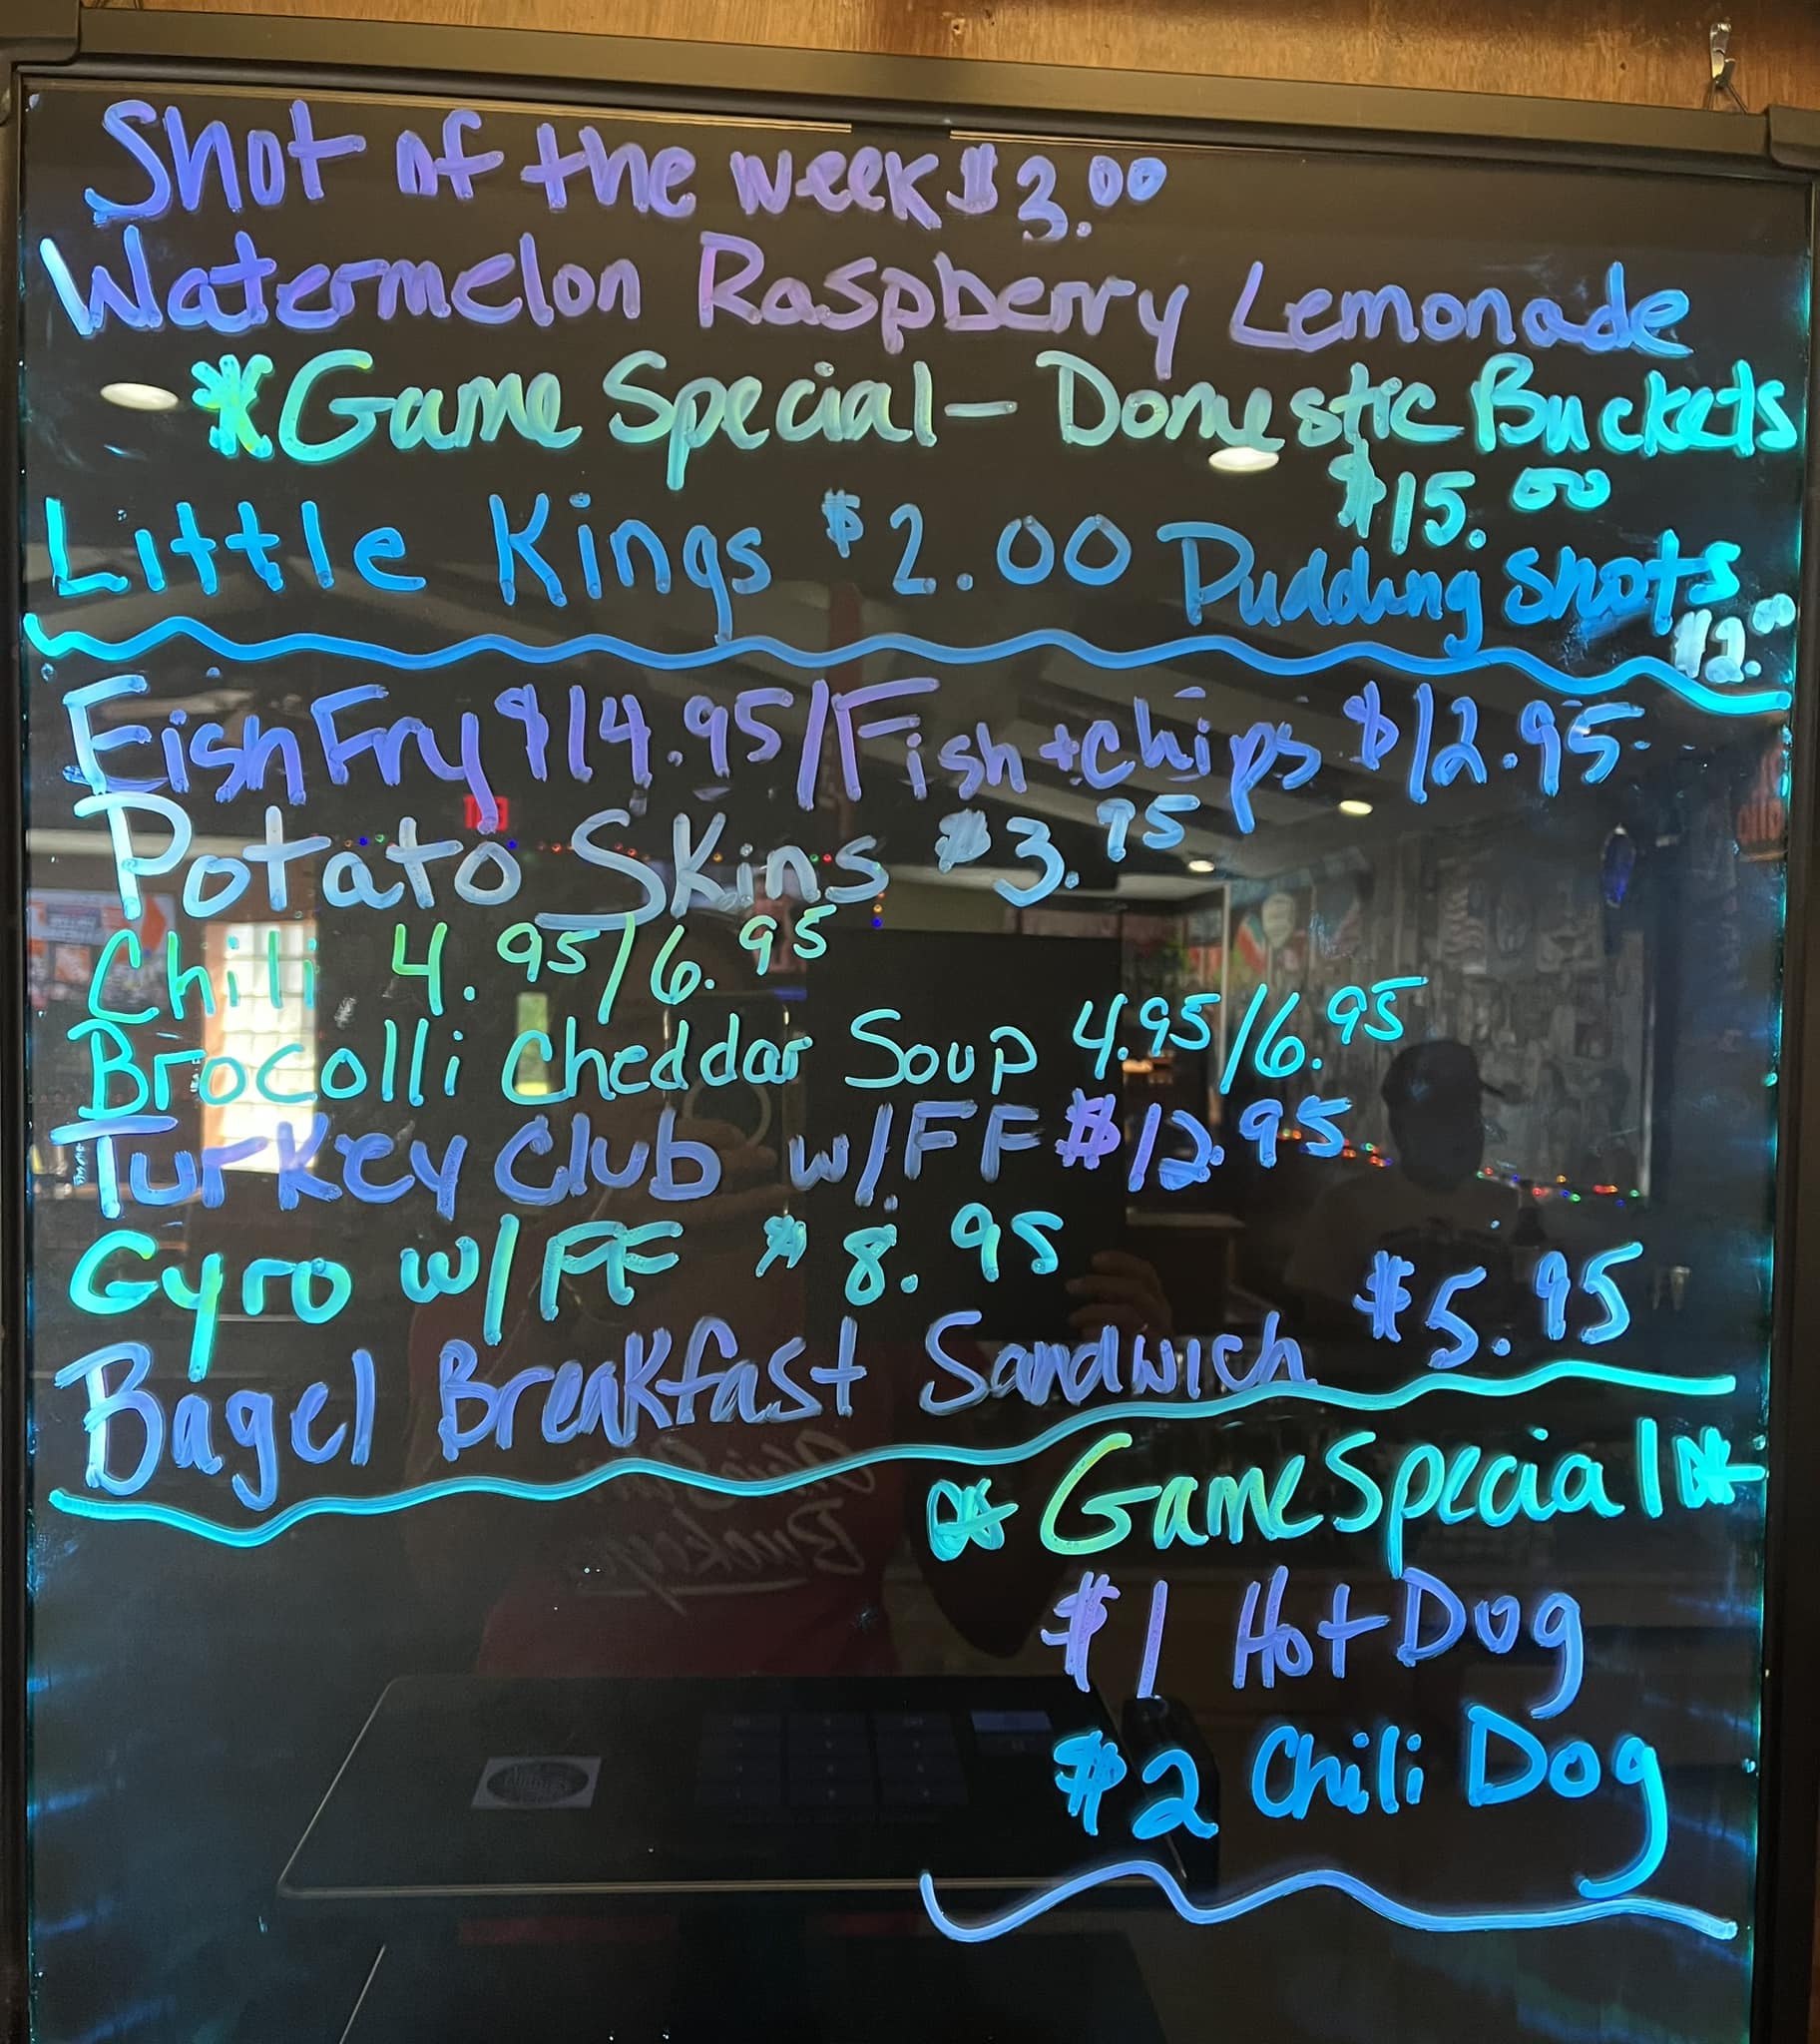 Shot of the week $3.00
Watermelon Raspberry Lemonade
*Game Special - Domestic Buckets
$15.00
Little Kings $2.00 Pudding Shots
$2.00
Fish Fry $14.95/Fish + chips $12.95
Potato Skins $3.75
Chili 4.95/6.95
Brocolli Cheddar Soup 4.95/6.95
Turkey Club w/FF $12.95
Gyro w/FF $8.95
Bagel Breakfast Sandwich $5.95
* Game Special *
$1 Hot Dog
$2 Chili Dog